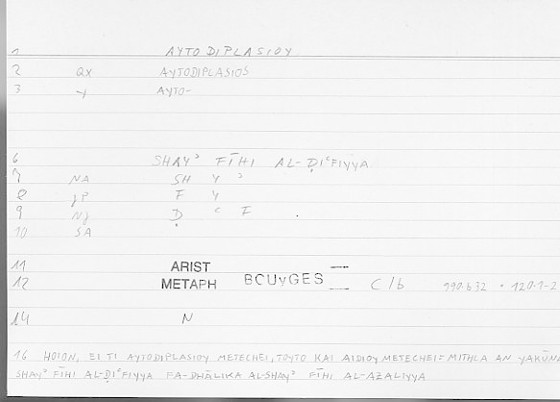 1 AYTODIPLASIOY
2 QX AYTODIPLASIOS
3 AYTO-
6 SHAYʾ FĪHI AL-ḌIʿFIYYA
7 NA SH Y ʾ
8 F Y
9 NJ Ḍ ʿ F .
10 SA
11 ARIST
12 METAPH BOUyGES C/b 990b32 · 120.1-2
14 N
16 HOION, EI TI AYTODIPLASIOY METECHEI, TOYTO KAI AIDIOY METECHEI = MITHLA AN YAKŪNA
SHAYʾ FĪHI AL-ḌIʿFIYYA FA-DHĀLIKA AL-SHAYʾ FĪHI AL-AZALIYYA